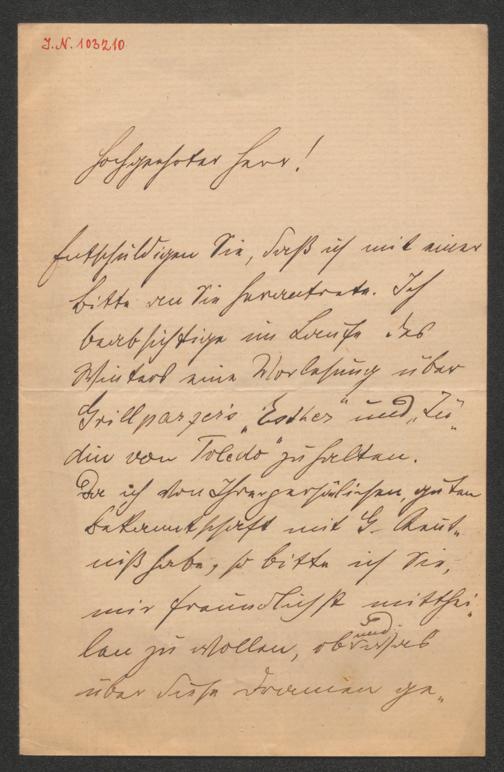 J.N. 103210
Hochgeehrter Herr!
Entschuldigen Sie, daß ich mit einer
Bitte an Sie herantrete. Ich
beabsichtige im Laufe des
Winters eine Vorlesung über
Grillparzer's „Esther" und „Jü-
din von Toledo" zu halten.
Da ich von Ihrer persönlichen, guten
Bekanntschaft mit G. Kennt-
niß habe, so bitte ich Sie,
mir freundlichst mitthei-
len zu wollen, ob und was
über diese Dramen ge-